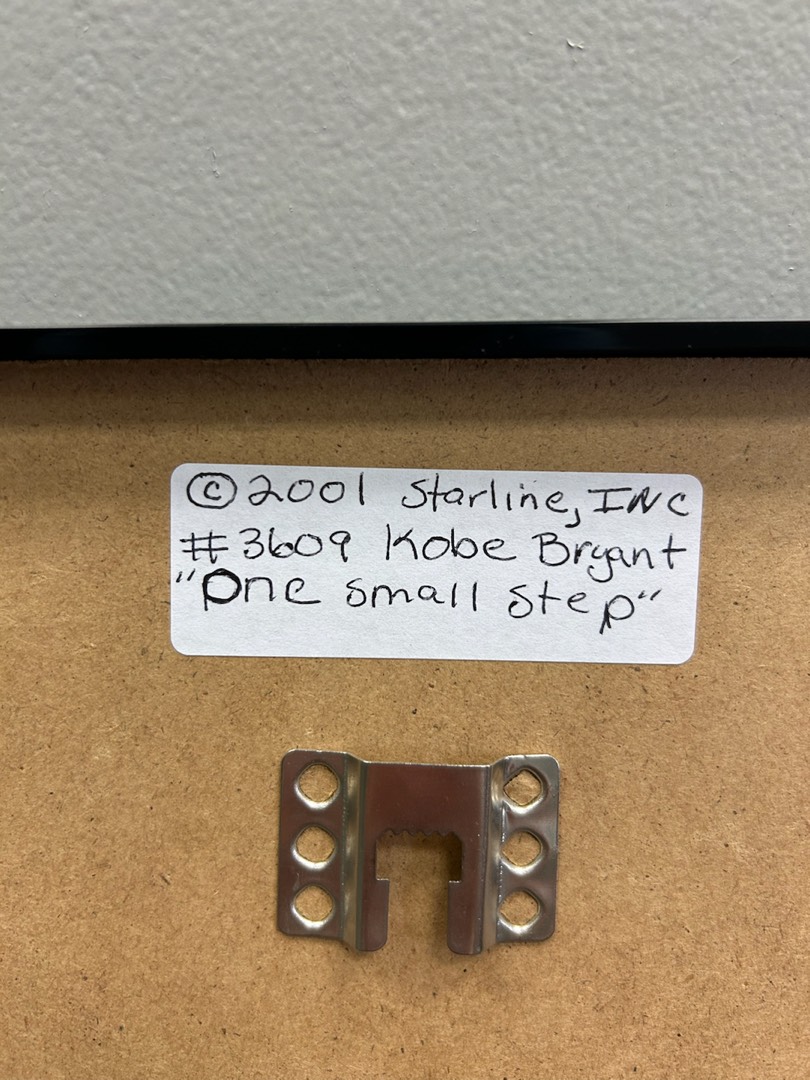 ©2001 Starline, INC
#3609 Kobe Bryant
"One small step"